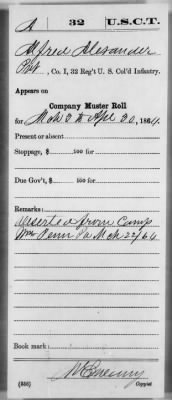 A | 32 | U.S.C.T.
Alfred Alexander
Pvt, Co. I, 32 Reg't U. S. Col'd Infantry.
Appears on
Company Muster Roll
for Mch 3 to Apl 30, 1864.
Present or absent
Stoppage, $ 100 for
Due Gov't, $ 100 for
Remarks:
Deserted from Camp
Wm Penn Pa Mch 22/64
Book mark:
(366)
Copyist.